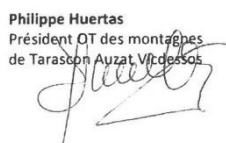 Philippe Huertas
Président OT des montagnes
de Tarascon Auzat Vicdessos